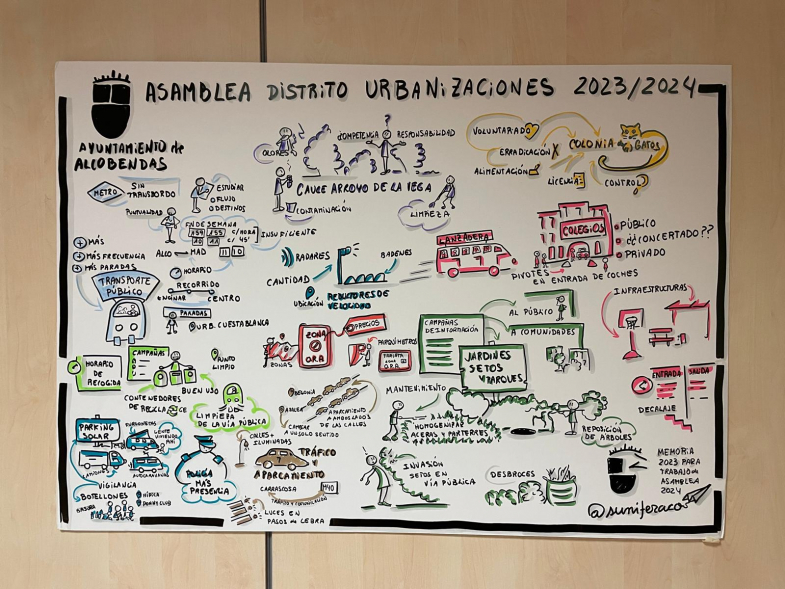 ASAMBLEA DISTRITO URBANIZACIONES 2023/2024
AYUNTAMIENTO de
ALCOBENDAS
METRO
SIN
TRANSBORDO
ESTUDIAR
FLUJO
DESTINOS
PUNTUALIDAD
FIN DE SEMANA
154 155
C/HORA
C/ 45'
INSUFICIENTE
ALCO MAD
MÁS
MÁS FRECUENCIA
MÁS PARADAS
TRANSPORTE
PÚBLICO
HORARIO
RECORRIDO
CENTRO
PARADAS
URB. CUESTABLANCA
OLORES
COMPETENCIA
?
RESPONSABILIDAD
CAUCE ARROYO DE LA VEGA
CONTAMINACIÓN
LIMPIEZA
VOLUNTARIADO
ERRADICACIÓN X
ALIMENTACIÓN
COLONIA de GATOS
LICENCIA
CONTROL
RADARES
BADENES
CANTIDAD
UBICACIÓN
REDUCTORES DE
VELOCIDAD
LANZADERA
COLEGIOS
PÚBLICO
¿CONCERTADO??
PRIVADO
PIVOTES
EN ENTRADA DE COCHES
INFRAESTRUCTURAS
ZONA
O.R.A.
PRECIOS
ZONAS
PARQUÍMETROS
TARJETA
O.R.A.
CAMPAÑAS
DE INFORMACIÓN
AL PÚBLICO
A COMUNIDADES
JARDINES
SETOS
Y PARQUES
MANTENIMIENTO
HOMOGENEIZAR
ACERAS Y PARTERRES
REPOSICIÓN
DE ÁRBOLES
ENTRADA
SALIDA
DECALAJE
HORARIO
DE
RECOGIDA
CAMPAÑAS
PUNTO
LIMPIO
BUEN USO
CONTENEDORES
DE RECICLAJE
LIMPIEZA
DE LA VÍA PÚBLICA
BEGONIA
AZALEA
CAMBIAR
A UN SOLO SENTIDO
APARCAMIENTO
A AMBOS LADOS
DE LAS CALLES
CALLES +
ILUMINADAS
TRÁFICO
Y
APARCAMIENTO
CARRASCOSA
LUCES EN
PASOS de CEBRA
PARKING
SOLAR
FURGONETAS
GENTE
VIVIENDO
AHÍ
AUTOCARAVANAS
VIGILANCIA
BOTELLONES
BASURA
POLICÍA
MÁS
PRESENCIA
INVASIÓN
SETOS EN
VÍA PÚBLICA
DESBROCES
MEMORIA
2023 PARA
TRABAJO de
ASAMBLEA
2024
@suniferacos